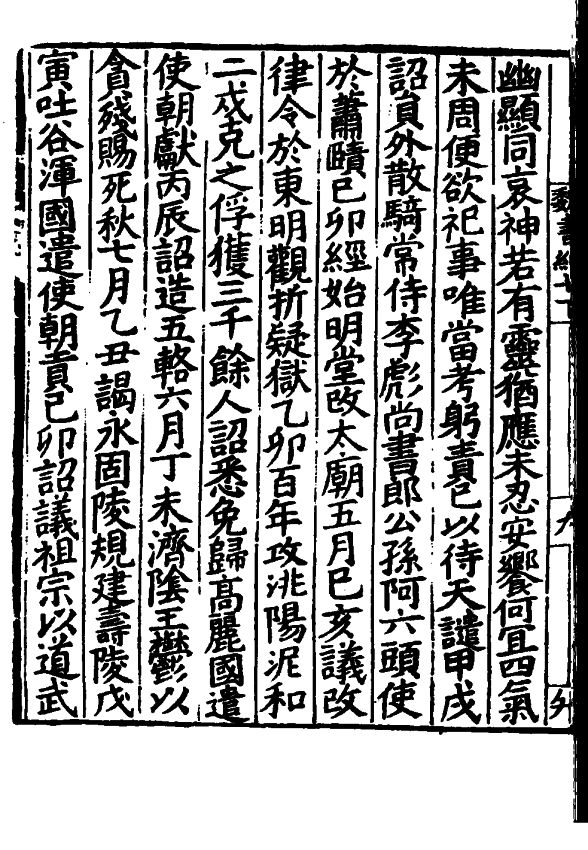 幽顯同哀神若有靈猶應未忍安饗何宜四氣
未周便欲祀事唯當考躬責已以待天譴甲戌
詔員外散騎常侍李彪尚書郎公孫阿六頭使
於蕭賾已卯經始明堂改太廟五月已亥議改
律令於東明觀折疑獄乙卯百年攻洮陽泥和
二戍克之俘獲三千餘人詔悉免歸高麗國遣
使朝獻丙辰詔造五輅六月丁未濟陰王鬱以
貪殘賜死秋七月乙丑謁永固陵規建壽陵戊
寅吐谷渾國遣使朝貢已卯詔議祖宗以道武